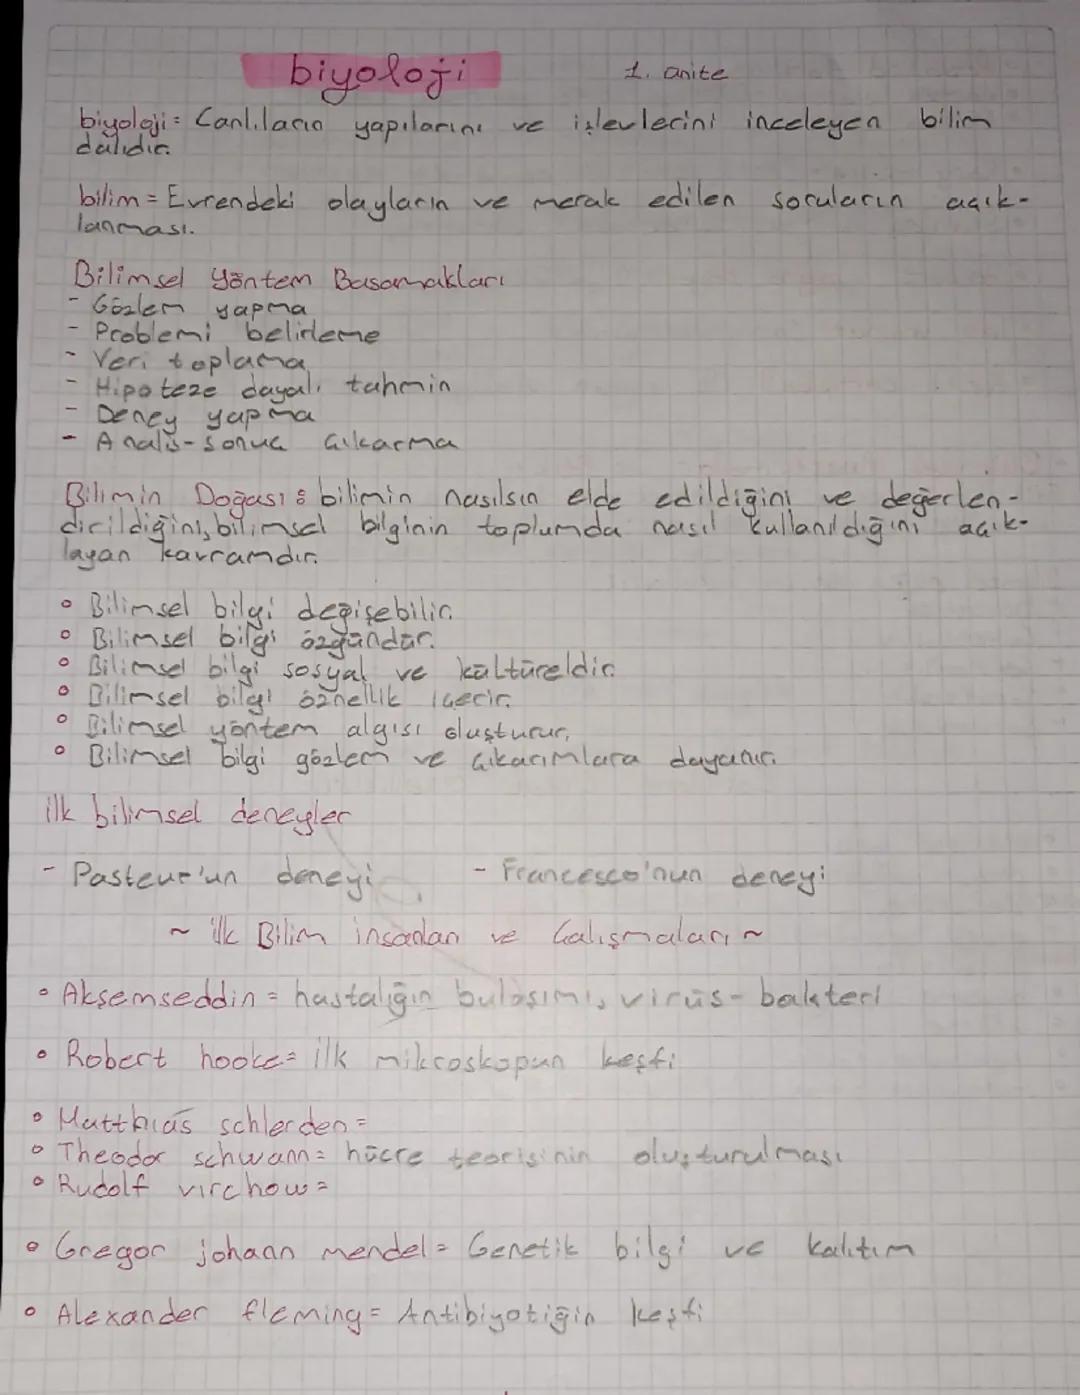 biyoloji 1. ünite
biyoloji = Canlıların yapılarını ve işlevlerini inceleyen bilim
dalıdır.
bilim = Evrendeki olayların ve merak edilen soruların açık-
lanması.
Bilimsel Yöntem Basamakları
- Gözlem yapma
- Problemi belirleme
- Veri toplama
- Hipoteze dayalı tahmin
- Deney yapma
- Analis-sonuç çıkarma
Bilimin Doğası: bilimin nasılsın elde edildiğini ve değerlen-
dirildiğini, bilimsel bilginin toplumda nasıl kullanıldığını açık-
layan kavramdır.
° Bilimsel bilgi değişebilir.
° Bilimsel bilgi özgündür.
° Bilimsel bilgi sosyal ve kültüreldir.
° Bilimsel bilgi öznellik içerir.
° Bilimsel yöntem algısı oluşturur.
° Bilimsel bilgi gözlem ve çıkarımlara dayanır.
ilk bilimsel deneyler
- Pasteur'un deneyi - Francesco'nun deneyi
~ ilk Bilim insanları ve Çalışmaları ~
° Akşemseddin = hastalığın bulaşımı, virüs-bakteri
° Robert hooke = ilk mikroskopun keşfi
° Matthias schlerden =
° Theodor schwann = hücre teorisi'nin oluşturulması
° Rudolf virchow =
° Gregor johann mendel = Genetik bilgi ve kalıtım
° Alexander fleming = Antibiyotiğin keşfi